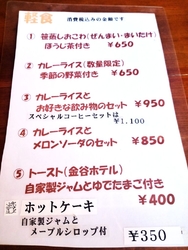 軽食
消費税込みの金額です
① 笹蒸しおこわ(ぜんまい・まいたけ)
ほうじ茶付き ¥650
② カレーライス(数量限定)
季節の野菜付き ¥650
③ カレーライスと
お好きな飲み物のセット ¥950
スペシャルコーヒーセットは
¥1,100
④ カレーライスと
メロンソーダのセット ¥850
⑤ トースト(金谷ホテル)
自家製ジャムとゆでたまご付き
¥400
ホットケーキ
自家製ジャムと
メープルシロップ付
¥350